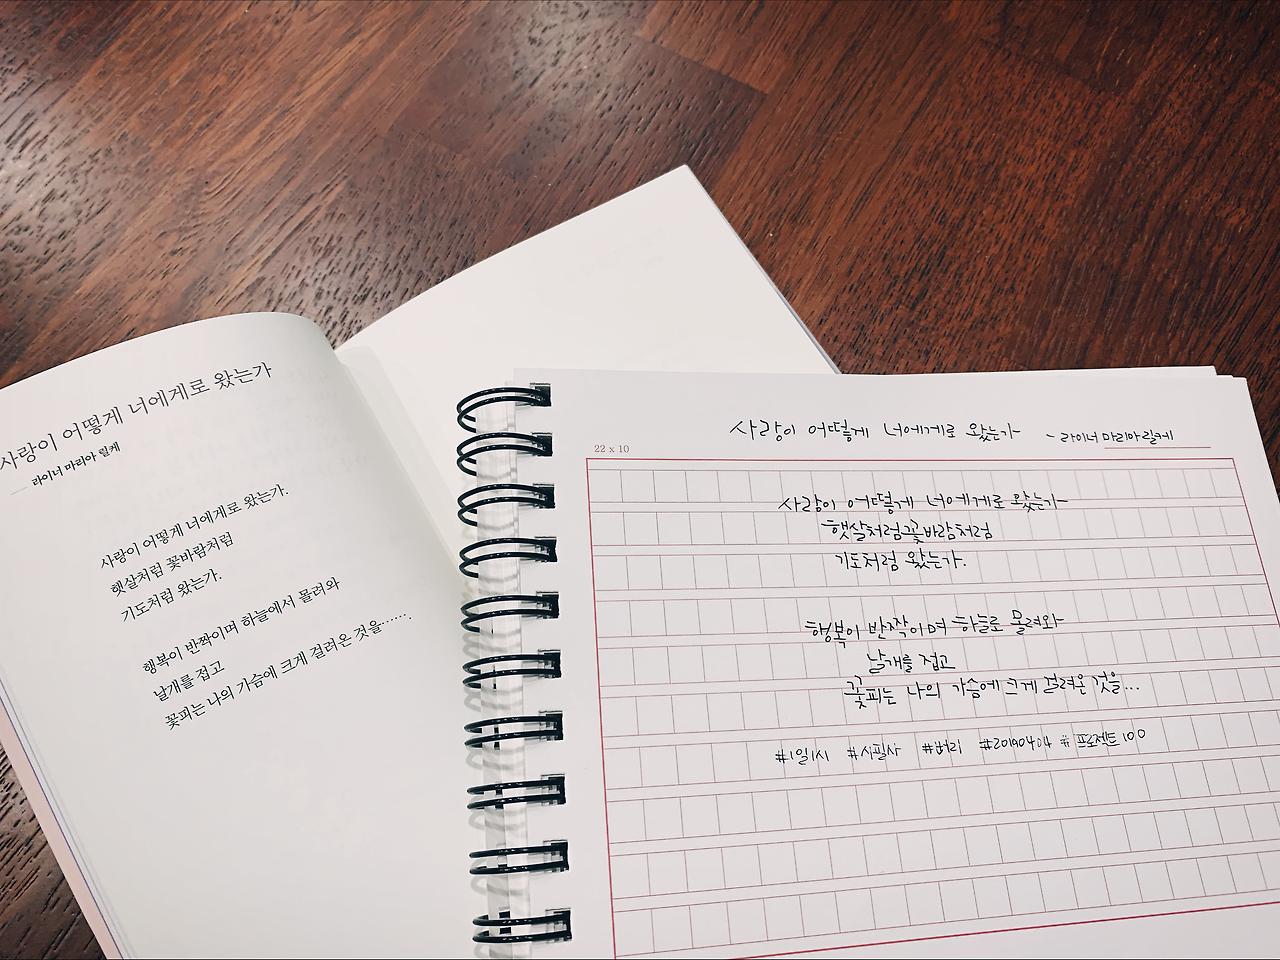 사랑이 어떻게 너에게로 왔는가
— 라이너 마리아 릴케
사랑이 어떻게 너에게로 왔는가.
햇살처럼 꽃바람처럼
기도처럼 왔는가.
행복이 반짝이며 하늘에서 몰려와
날개를 접고
꽃피는 나의 가슴에 크게 걸려온 것을…….
사랑이 어떻게 너에게로 왔는가 - 라이너 마리아 릴케
22 x 10
사랑이 어떻게 너에게로 왔는가
햇살처럼 꽃바람처럼
기도처럼 왔는가.
행복이 반짝이며 하늘로 몰려와
날개를 접고
꽃피는 나의 가슴에 크게 걸려온 것을...
#1일1시 #시필사 #버리 #20190404 #프로젝트100